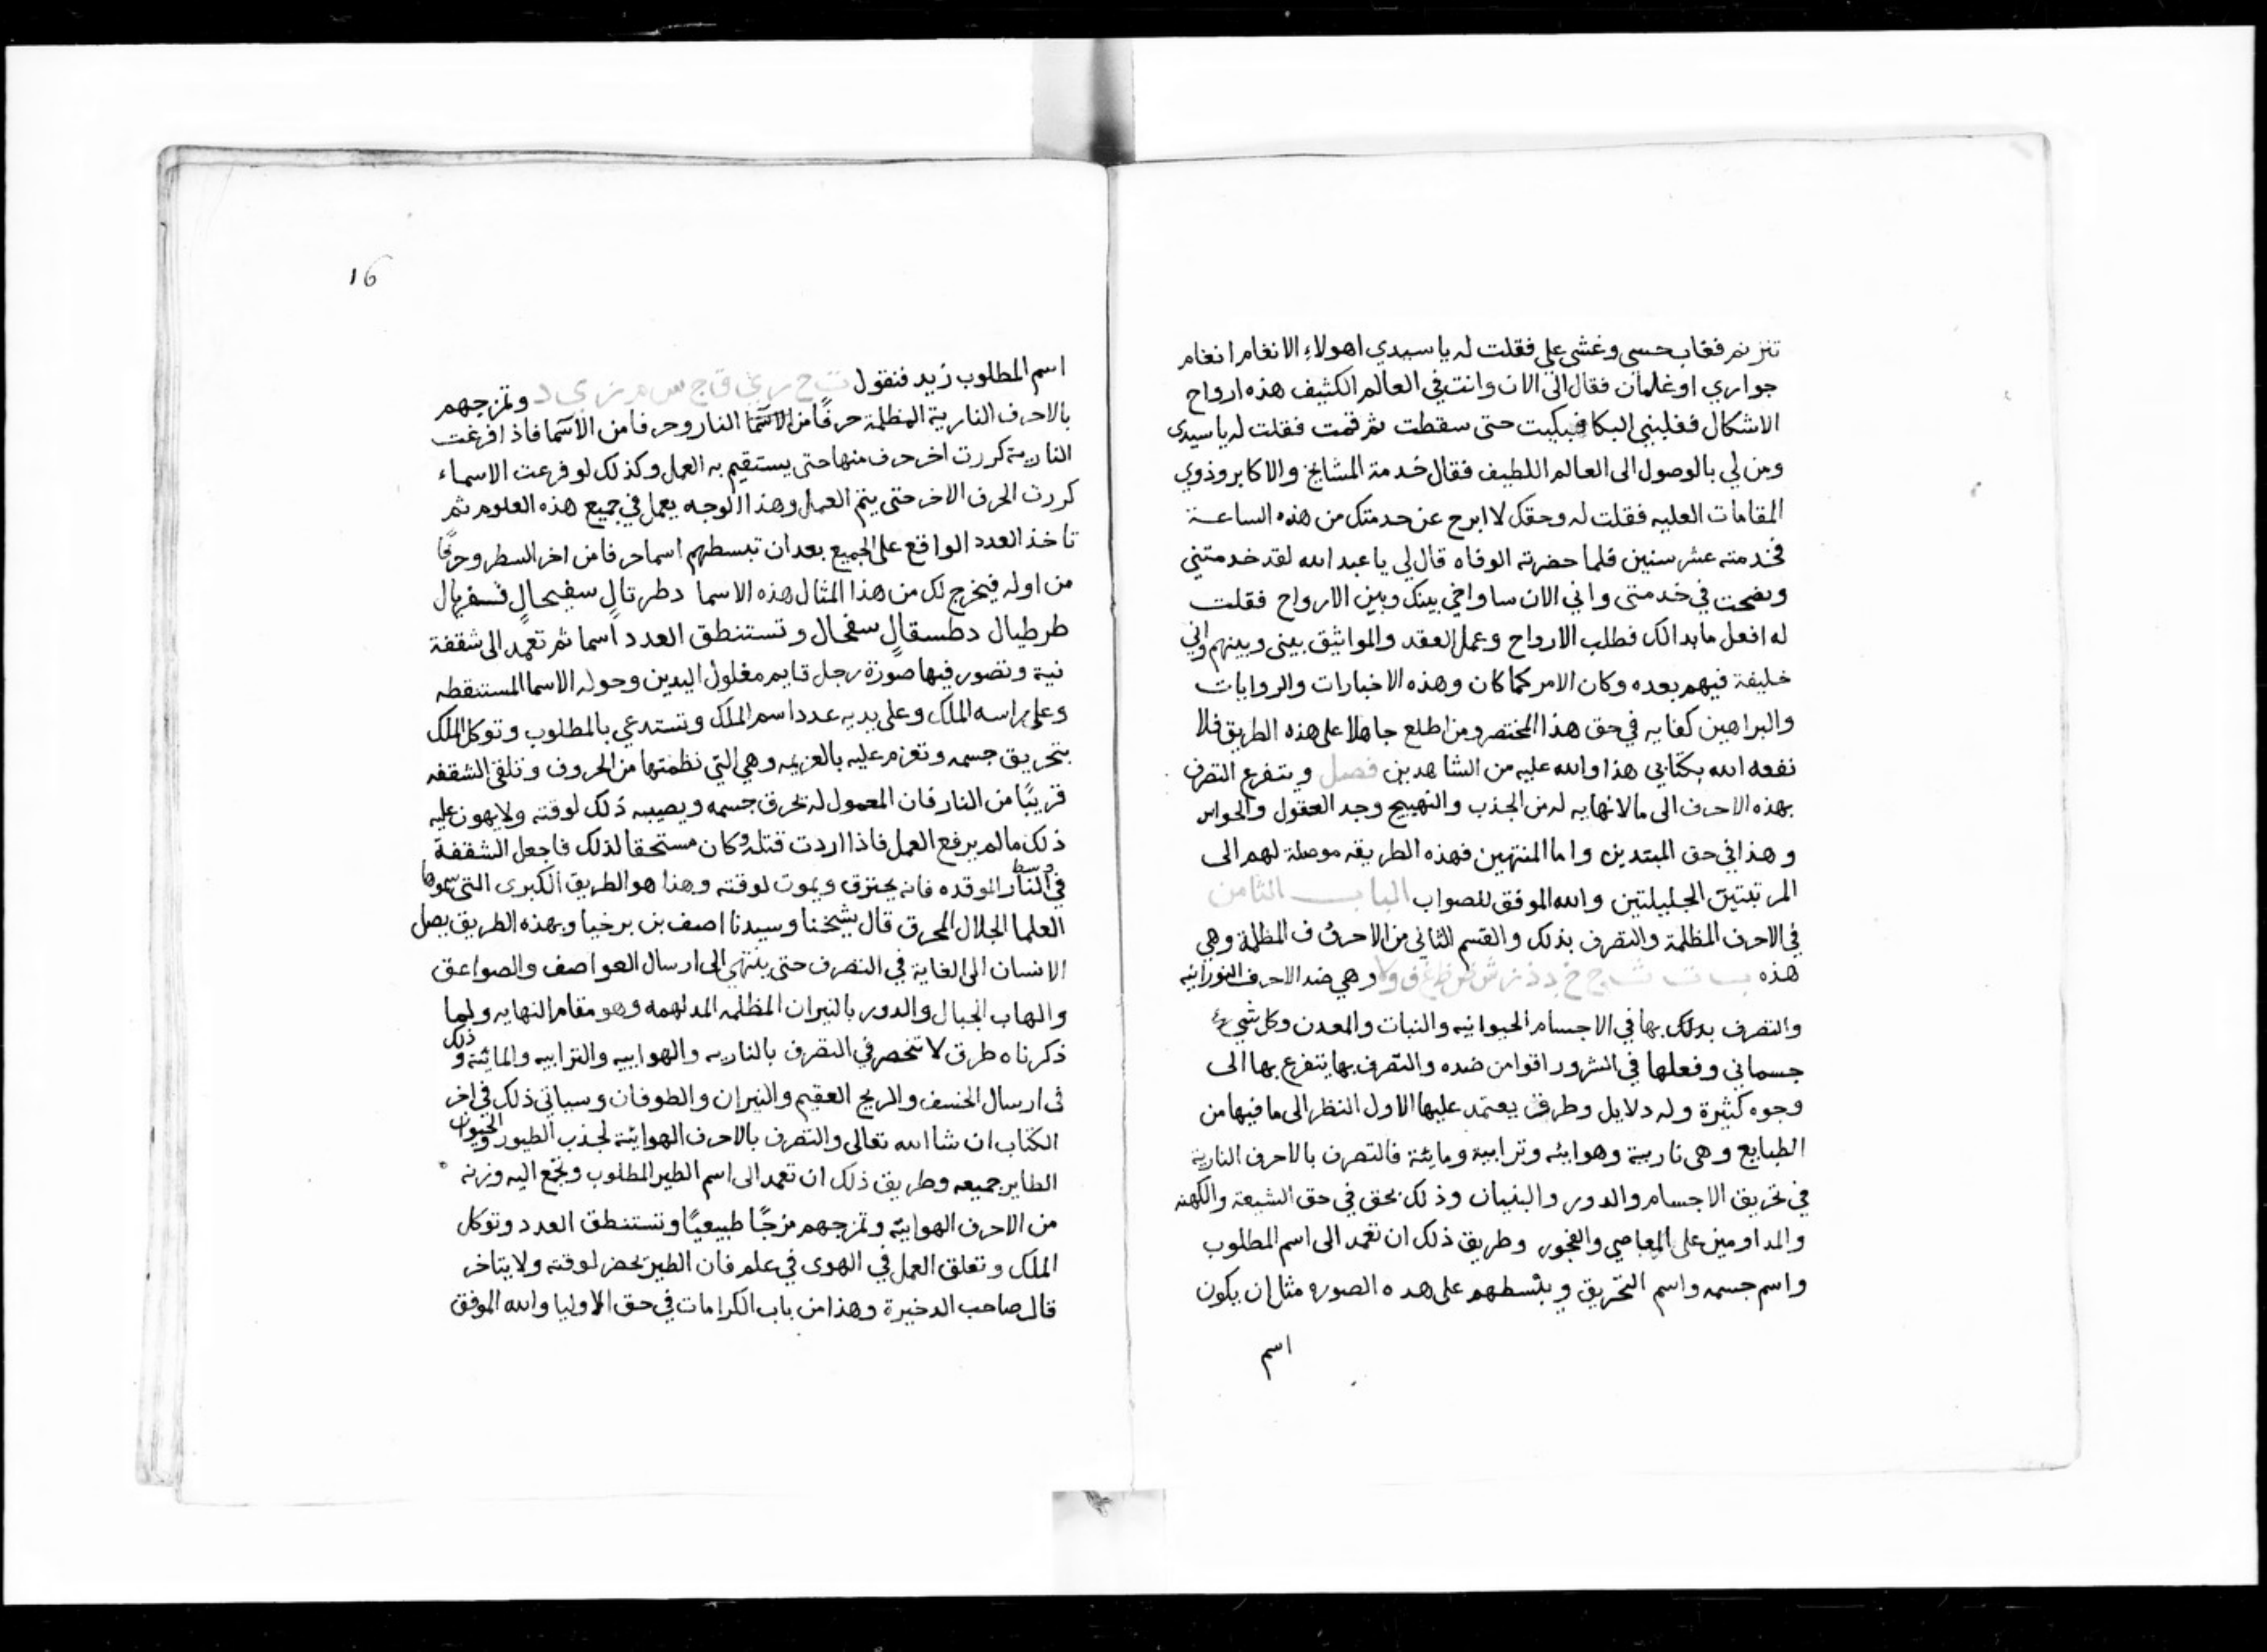 تترنم فغاب حسي وغشى علي فقلت له ياسيدي اهولاء الانغام انغام
جواري او غلمان فقال الى الان وانت في العالم الكثيف هذه ارواح
الاشكال فغلبني البكا فبكيت حتى سقطت ثم قمت فقلت له ياسيدى
ومن لي بالوصول الى العالم اللطيف فقال خدمة المشايخ والاكابر وذوي
المقامات العليه فقلت له وحقك لا ابرح عن خدمتك من هذه الساعة
فخدمته عشر سنين فلما حضرته الوفاه قال لي ياعبد الله لقد خدمتني
ونصحت في خدمتى واني الان ساواخي بينك وبين الارواح فقلت
له افعل مابدالك فطلب الارواح وعمل العقد والمواثيق بينى وبينهم واني
خليفة فيهم بعده وكان الامر كما كان وهذه الاخبارات والروايات
والبراهين كفايه في حق هذا المختصر ومن اطلع جاهلا على هذه الطريق فلا
نفعه الله بكتابي هذا والله عليه من الشاهدين فصل ويتفرع التصرف
بهذه الاحرف الى مالانهايه له من الجذب والتهييج وجد العقول والحواس
وهذا في حق المبتدين واما المنتهين فهذه الطريقه موصلة لهم الى
المرتبتين الجليلتين والله الموفق للصواب الباب الثامن
في الاحرف المظلمة والتصرف بذلك والقسم الثاني من الاحرف المظلمة وهي
هذه ب ت ث ج خ د ذ ز ش ض ظ غ ف و لا وهي ضد الاحرف النورانيه
والتصرف بذلك بها في الاجسام الحيوانيه والنبات والمعدن وكل شيء
جسماني وفعلها في الشرور اقوا من ضده والتصرف بها يتفرع بها الى
وجوه كثيرة وله دلايل وطرق يعتمد عليها الاول النظر الى ما فيها من
الطبايع وهى نارية وهوايئه وترابية ومايئة فالتصرف بالاحرف النارية
في تحريق الاجسام والدور والبنيان وذلك بحق في حق الشيعة والكهنه
والمداومين على المعاصي والفجور وطريق ذلك ان تعمد الى اسم المطلوب
واسم جسمه واسم التحريق وبتسطهم على هذه الصوره مثال ان يكون
اسم
16
اسم المطلوب زيد فنقول ت ح ر ي ق ا ج س م ز ي د وتمزجهم
بالاحرف النارية المظلمة حرفًا من الاسما النار وحرفا من الاسما فاذا فرغت
النارية كررت اخر حرف منها حتى يستقيم به العمل وكذلك لو فرغت الاسماء
كررت الحرف الاخر حتى يتم العمل وهذا الوجه يعمل في جميع هذه العلوم ثم
تاخذ العدد الواقع على الجميع بعد ان تبسطهم اسما حرفا من اخر السطر وحرفًا
من اوله فيخرج لك من هذا المثال هذه الاسما دطرتال سفيحال فسفريال
طرطيال دطسقال سفحال وتستنطق العدد اسما ثم تعمد الى شقفة
نية وتصور فيها صورة رجل قايم مغلول اليدين وحوله الاسما المستنقطه
وعلى راسه الملك وعلى يديه عدد اسم الملك وتستدعي بالمطلوب وتوكل الملك
بتحريق جسمه وتعزم عليه بالعزيمه وهي التي نظمتها من الحروف وتلقى الشقفه
قريبًا من النار فان المعمول له تحرق جسمه ويصيبه ذلك لوقته ولايهون عليه
ذلك مالم يرفع العمل فاذا اردت قتله وكان مستحقا لذلك فاجعل الشقفة
في وسط النار الموقده فانه يحترق ويموت لوقته وهذا هو الطريق الكبرى التى سموها
العلما الجلال المحرق قال شيخنا وسيدنا اصف بن برخيا وبهذه الطريق يصل
الانسان الى الغاية في التصرف حتى ينتهي الى ارسال العواصف والصواعق
والهاب الجبال والدور بالنيران المظلمه المدلهمه وهو مقام النهايه ولما
ذكرناه طرق لا تنحصر في التصرف بالناريه والهواييه والترابيه والمايئة وذلك
فى ارسال الخسف والريح العقيم والنيران والطوفان وسياتي ذلك في اخر
الكتاب ان شاالله تعالى والتصرف بالاحرف الهوايئة لجذب الطيور والحيوان
الطاير جميعه وطريق ذلك ان تعمد الى اسم الطير المطلوب وتجمع اليه وزنه
من الاحرف الهوايئة وتمزجهم مزجًا طبيعيًا وتستنطق العدد وتوكل
الملك وتعلق العمل في الهوى في علم فان الطير يحضر لوقته ولايتاخر
قال صاحب الدخيرة وهذا من باب الكرامات في حق الاوليا والله الموفق